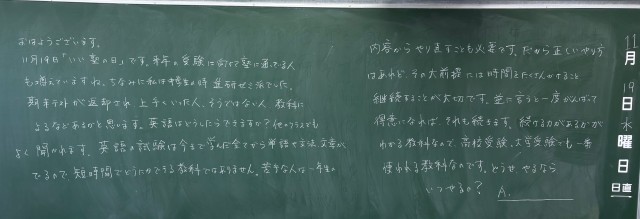 おはようございます。
11月19日「いい塾の日」です。来年の受験に向けて塾に通てる人
も増えていますね。ちなみに私は学生の時 進研ゼミ派でした。
期末テストが返却され 上手くいた人、そうではない人 教科に
よるなどあるかと思います。英語はどうしたらできますか？他のクラスでも
よく聞かれます。英語の試験は今まで学んだ全てから単語や文法 文章が
でるので、短時間でどうにかできる教科ではありません。苦手な人は一年生の
内容からやり直すことも必要です。だから正しいやり方
はあれど、その大前提には時間をたくさんかけること
継続することが大切です。逆に言うと一度がんばって
得意になれば、それも続きます。続ける力があるかが
わかる教科なので、高校受験、大学受験でも一番
使われる教科なのです。どうせやるなら
いつやるの？ A.
11月19日水曜日
日直